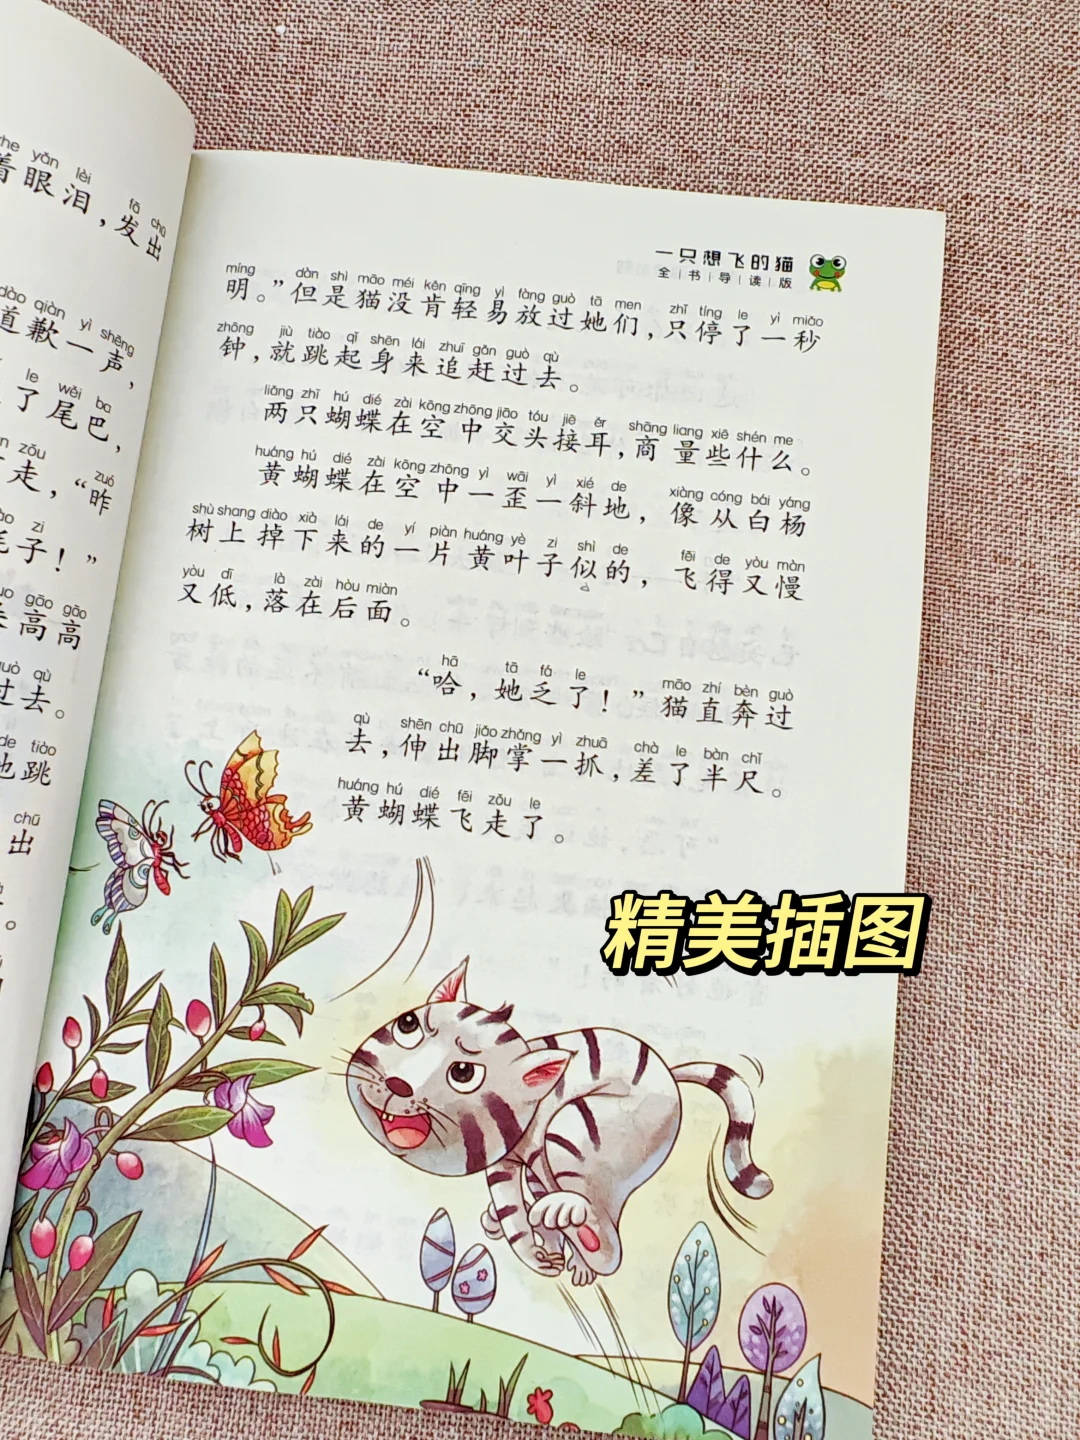 zhe yǎn lèi fā chū
着眼泪，发出
dào qiàn yì shēng
道歉一声，
le wěi ba
了尾巴，
zǒu zuó
走，“昨
zi
毛子！”
gāo gāo
高高
guò qù
过去。
de tiào
地跳
chū
出
一只想飞的猫
全|书|导|读|版
míng dàn shì māo méi kěn qīng yì fàng guò tā men zhǐ tíng le yì miǎo
明。”但是猫没肯轻易放过她们，只停了一秒
zhōng jiù tiào qǐ shēn lái zhuī gǎn guò qù
钟，就跳起身来追赶过去。
liǎng zhī hú dié zài kōng zhōng jiāo tóu jiē ěr shāng liang xiē shén me
两只蝴蝶在空中交头接耳，商量些什么。
huáng hú dié zài kōng zhōng yì wāi yì xié de xiàng cóng bái yáng
黄蝴蝶在空中一歪一斜地，像从白杨
shù shang diào xià lái de yí piàn huáng yè zi shì de fēi de yòu màn
树上掉下来的一片黄叶子似的，飞得又慢
yòu dī là zài hòu miàn
又低，落在后面。
hā tā fá le māo zhí bèn guò
“哈，她乏了！”猫直奔过
qù shēn chū jiǎo zhǎng yì zhuā chà le bàn chǐ
去，伸出脚掌一抓，差了半尺。
huáng hú dié fēi zǒu le
黄蝴蝶飞走了。
精美插图